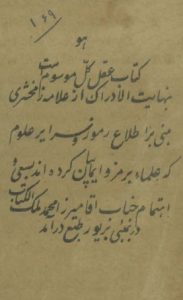 ۱۶۹
هو
کتاب عقل کل موسوم است
نهایت الادراک از علامه زمخشری
مبنی بر اطلاع رموز و سرایر علوم
که علماء برمز و ایما بیان کرده اند بسعی و
اهتمام جناب اقا میرزا محمد ملک الکتاب
در بمبئی بزیور طبع درامد